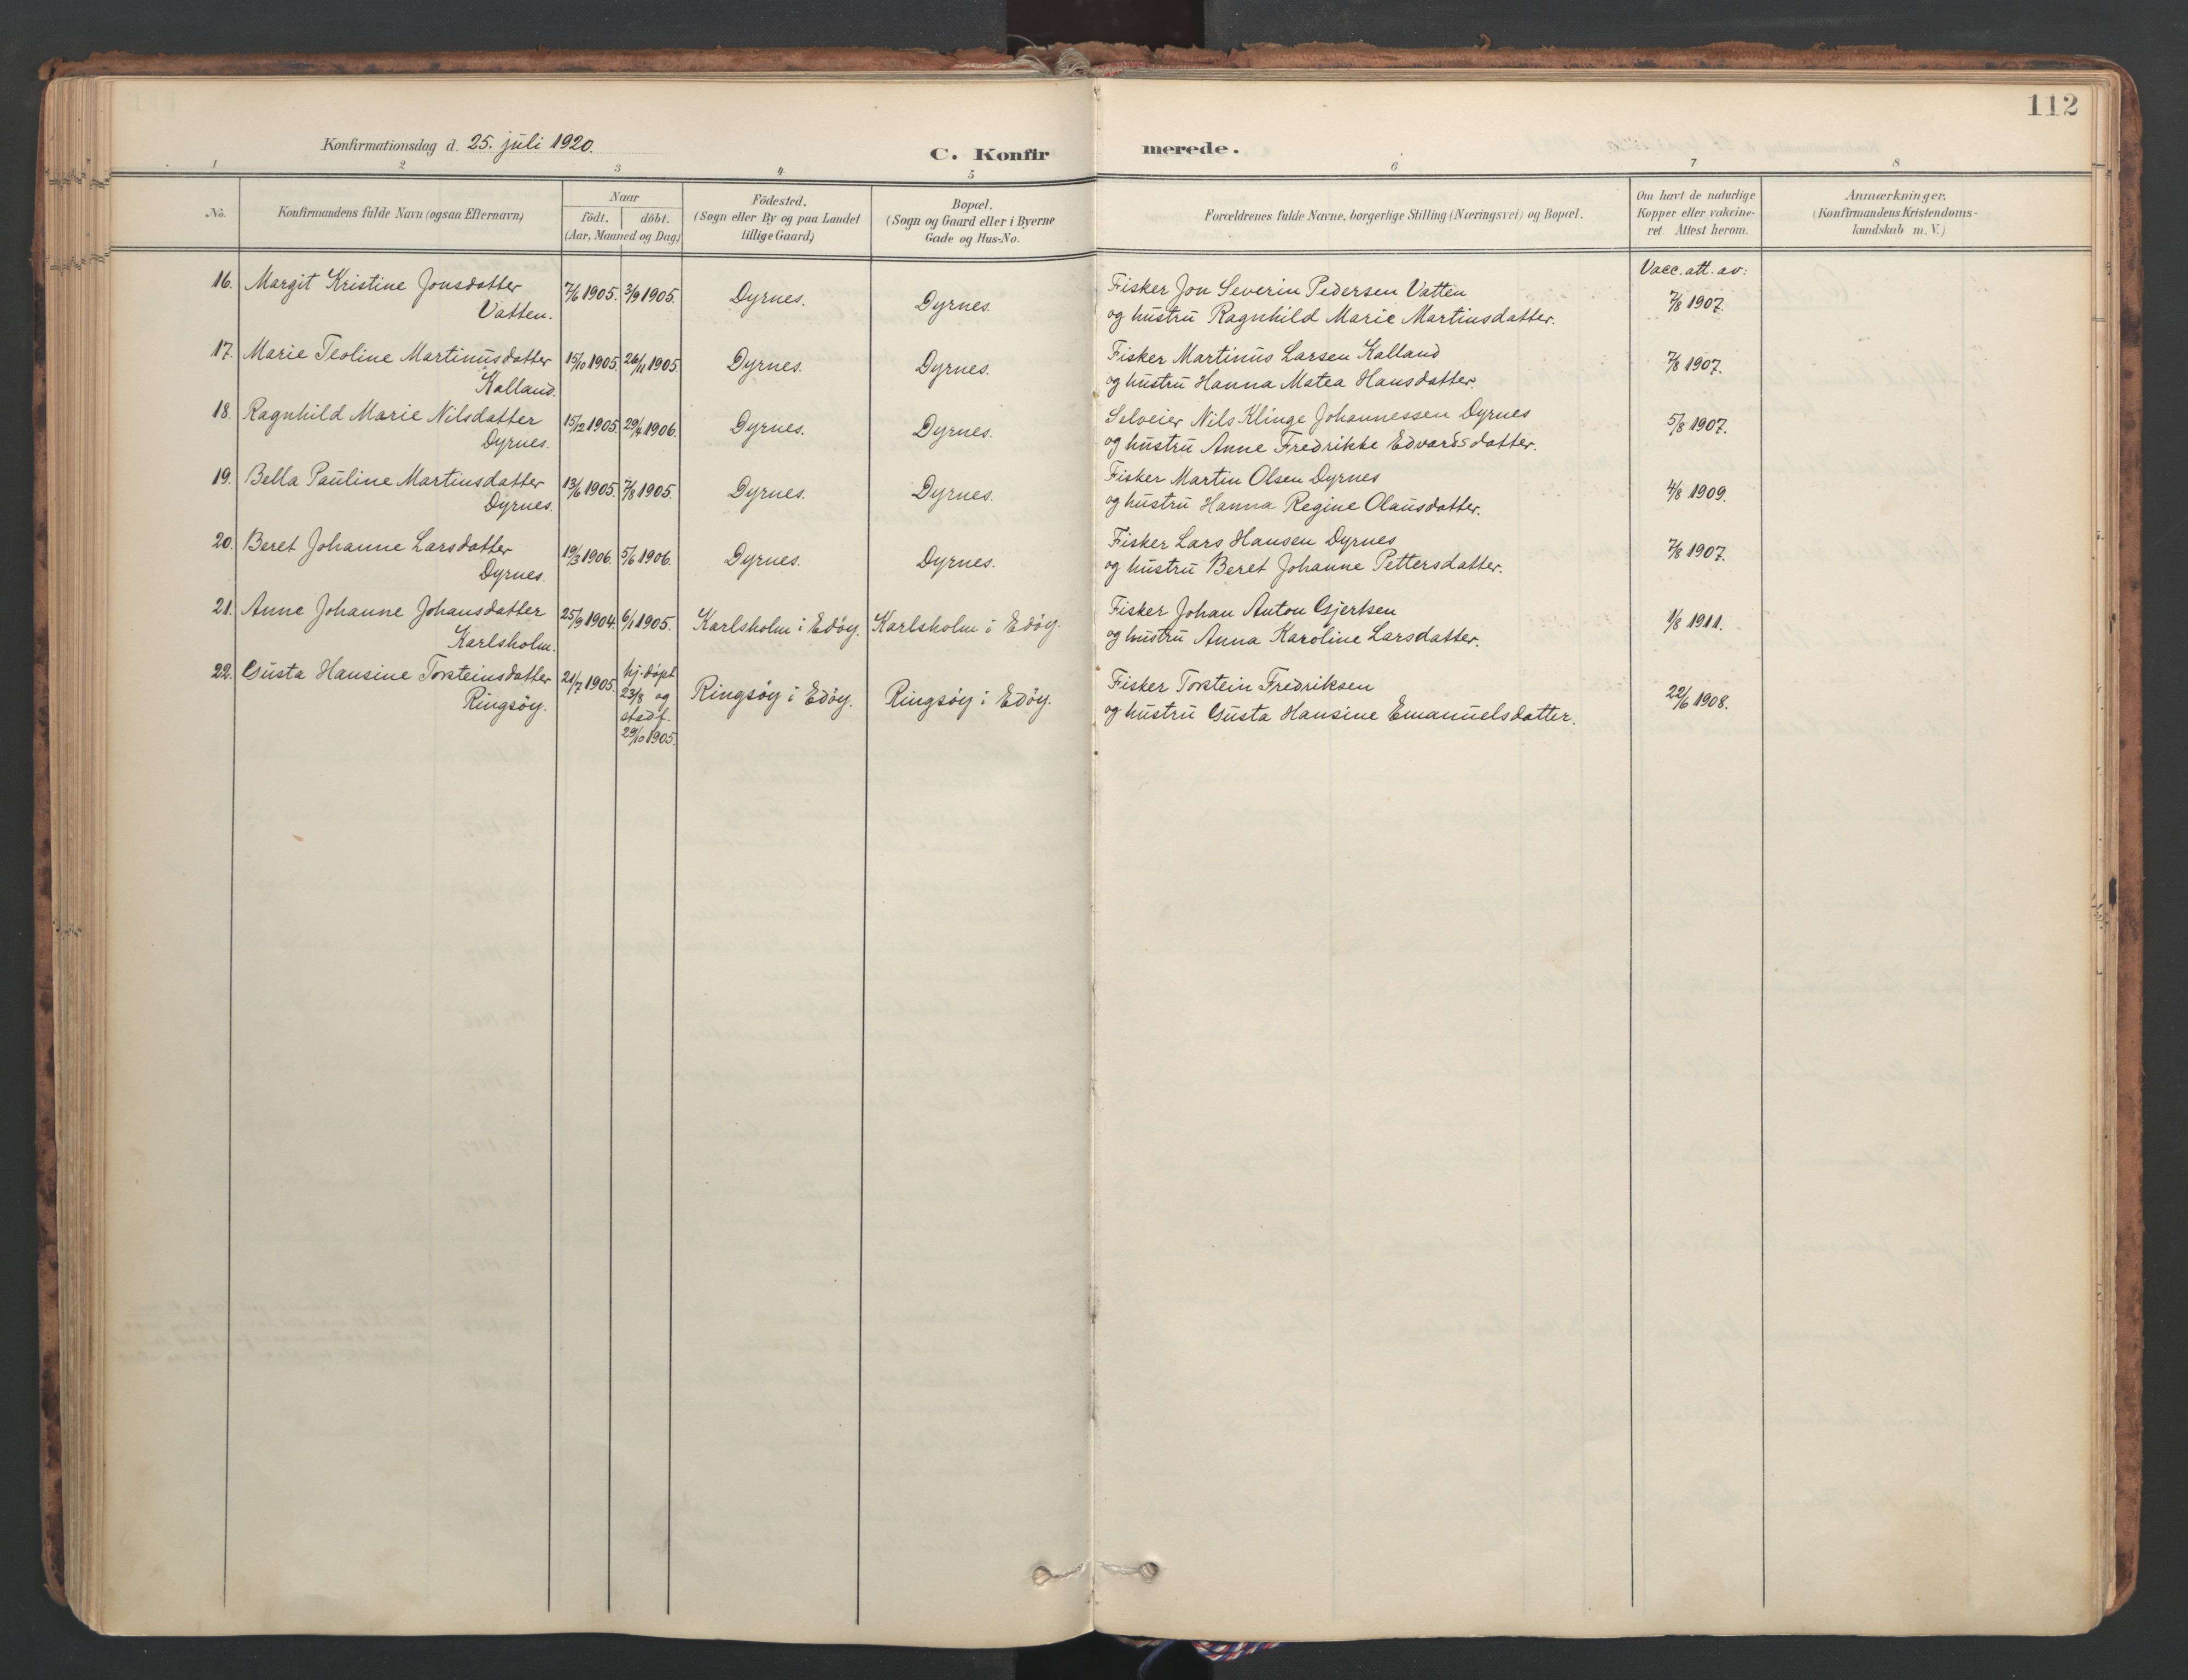 112
Konfirmationsdag d. 25. juli 1920.
C. Konfirmerede.
1 2 3 4 5 6 7 8
No.
Konfirmandens fulde Navn (ogsaa Efternavn)
Naar
födt. döbt.
(Aar, Maaned og Dag)
Födested.
(Sogn eller By og paa Landet
tillige Gaard)
Bopæl.
(Sogn og Gaard eller i Byerne
Gade og Hus-No.
Forældrenes fulde Navne, borgerlige Stilling (Næringsvei) og Bopæl.
Om havt de naturlige
Kopper eller vakcine-
ret. Attest herom.
Anmærkninger.
(Konfirmandens Kristendoms-
kundskab m. V.)
Vacc. att. av:
16. Margit Kristine Jonsdatter
Vatten.
7/6 1905. 3/9 1905. Dyrnes. Dyrnes.
Fisker Jon Severin Pedersen Vatten
og hustru Ragnhild Marie Martinsdatter.
7/8 1907.
17. Marie Teoline Martinusdatter
Kalland.
15/10 1905. 26/11 1905. Dyrnes. Dyrnes.
Fisker Martinus Larsen Kalland
og hustru Hanna Matea Hansdatter.
7/8 1907.
18. Ragnhild Marie Nilsdatter
Dyrnes.
15/12 1905. 29/4 1906. Dyrnes. Dyrnes.
Selveier Nils Klinge Johannessen Dyrnes
og hustru Anne Fredrikke Edvardsdatter.
5/8 1907.
19. Bella Pauline Martinsdatter
Dyrnes.
13/6 1905. 7/8 1905. Dyrnes. Dyrnes.
Fisker Martin Olsen Dyrnes
og hustru Hanna Regine Olausdatter.
4/8 1909.
20. Beret Johanne Larsdatter
Dyrnes.
19/3 1906. 5/6 1906. Dyrnes. Dyrnes.
Fisker Lars Hansen Dyrnes
og hustru Beret Johanne Pettersdatter.
7/8 1907.
21. Anne Johanne Johansdatter
Karlsholm.
25/9 1904. 6/1 1905. Karlsholm i Edöy. Karlsholm i Edöy.
Fisker Johan Anton Gjertsen
og hustru Anna Karoline Larsdatter.
1/8 1911.
22. Gusta Hansine Torsteinsdatter
Ringsöy.
21/7 1905. hj. döpt
23/8 og
stadf.
29/10 1905.
Ringsöy i Edöy. Ringsöy i Edöy.
Fisker Torstein Fredriksen
og hustru Gusta Hansine Emanuelsdatter.
22/6 1908.